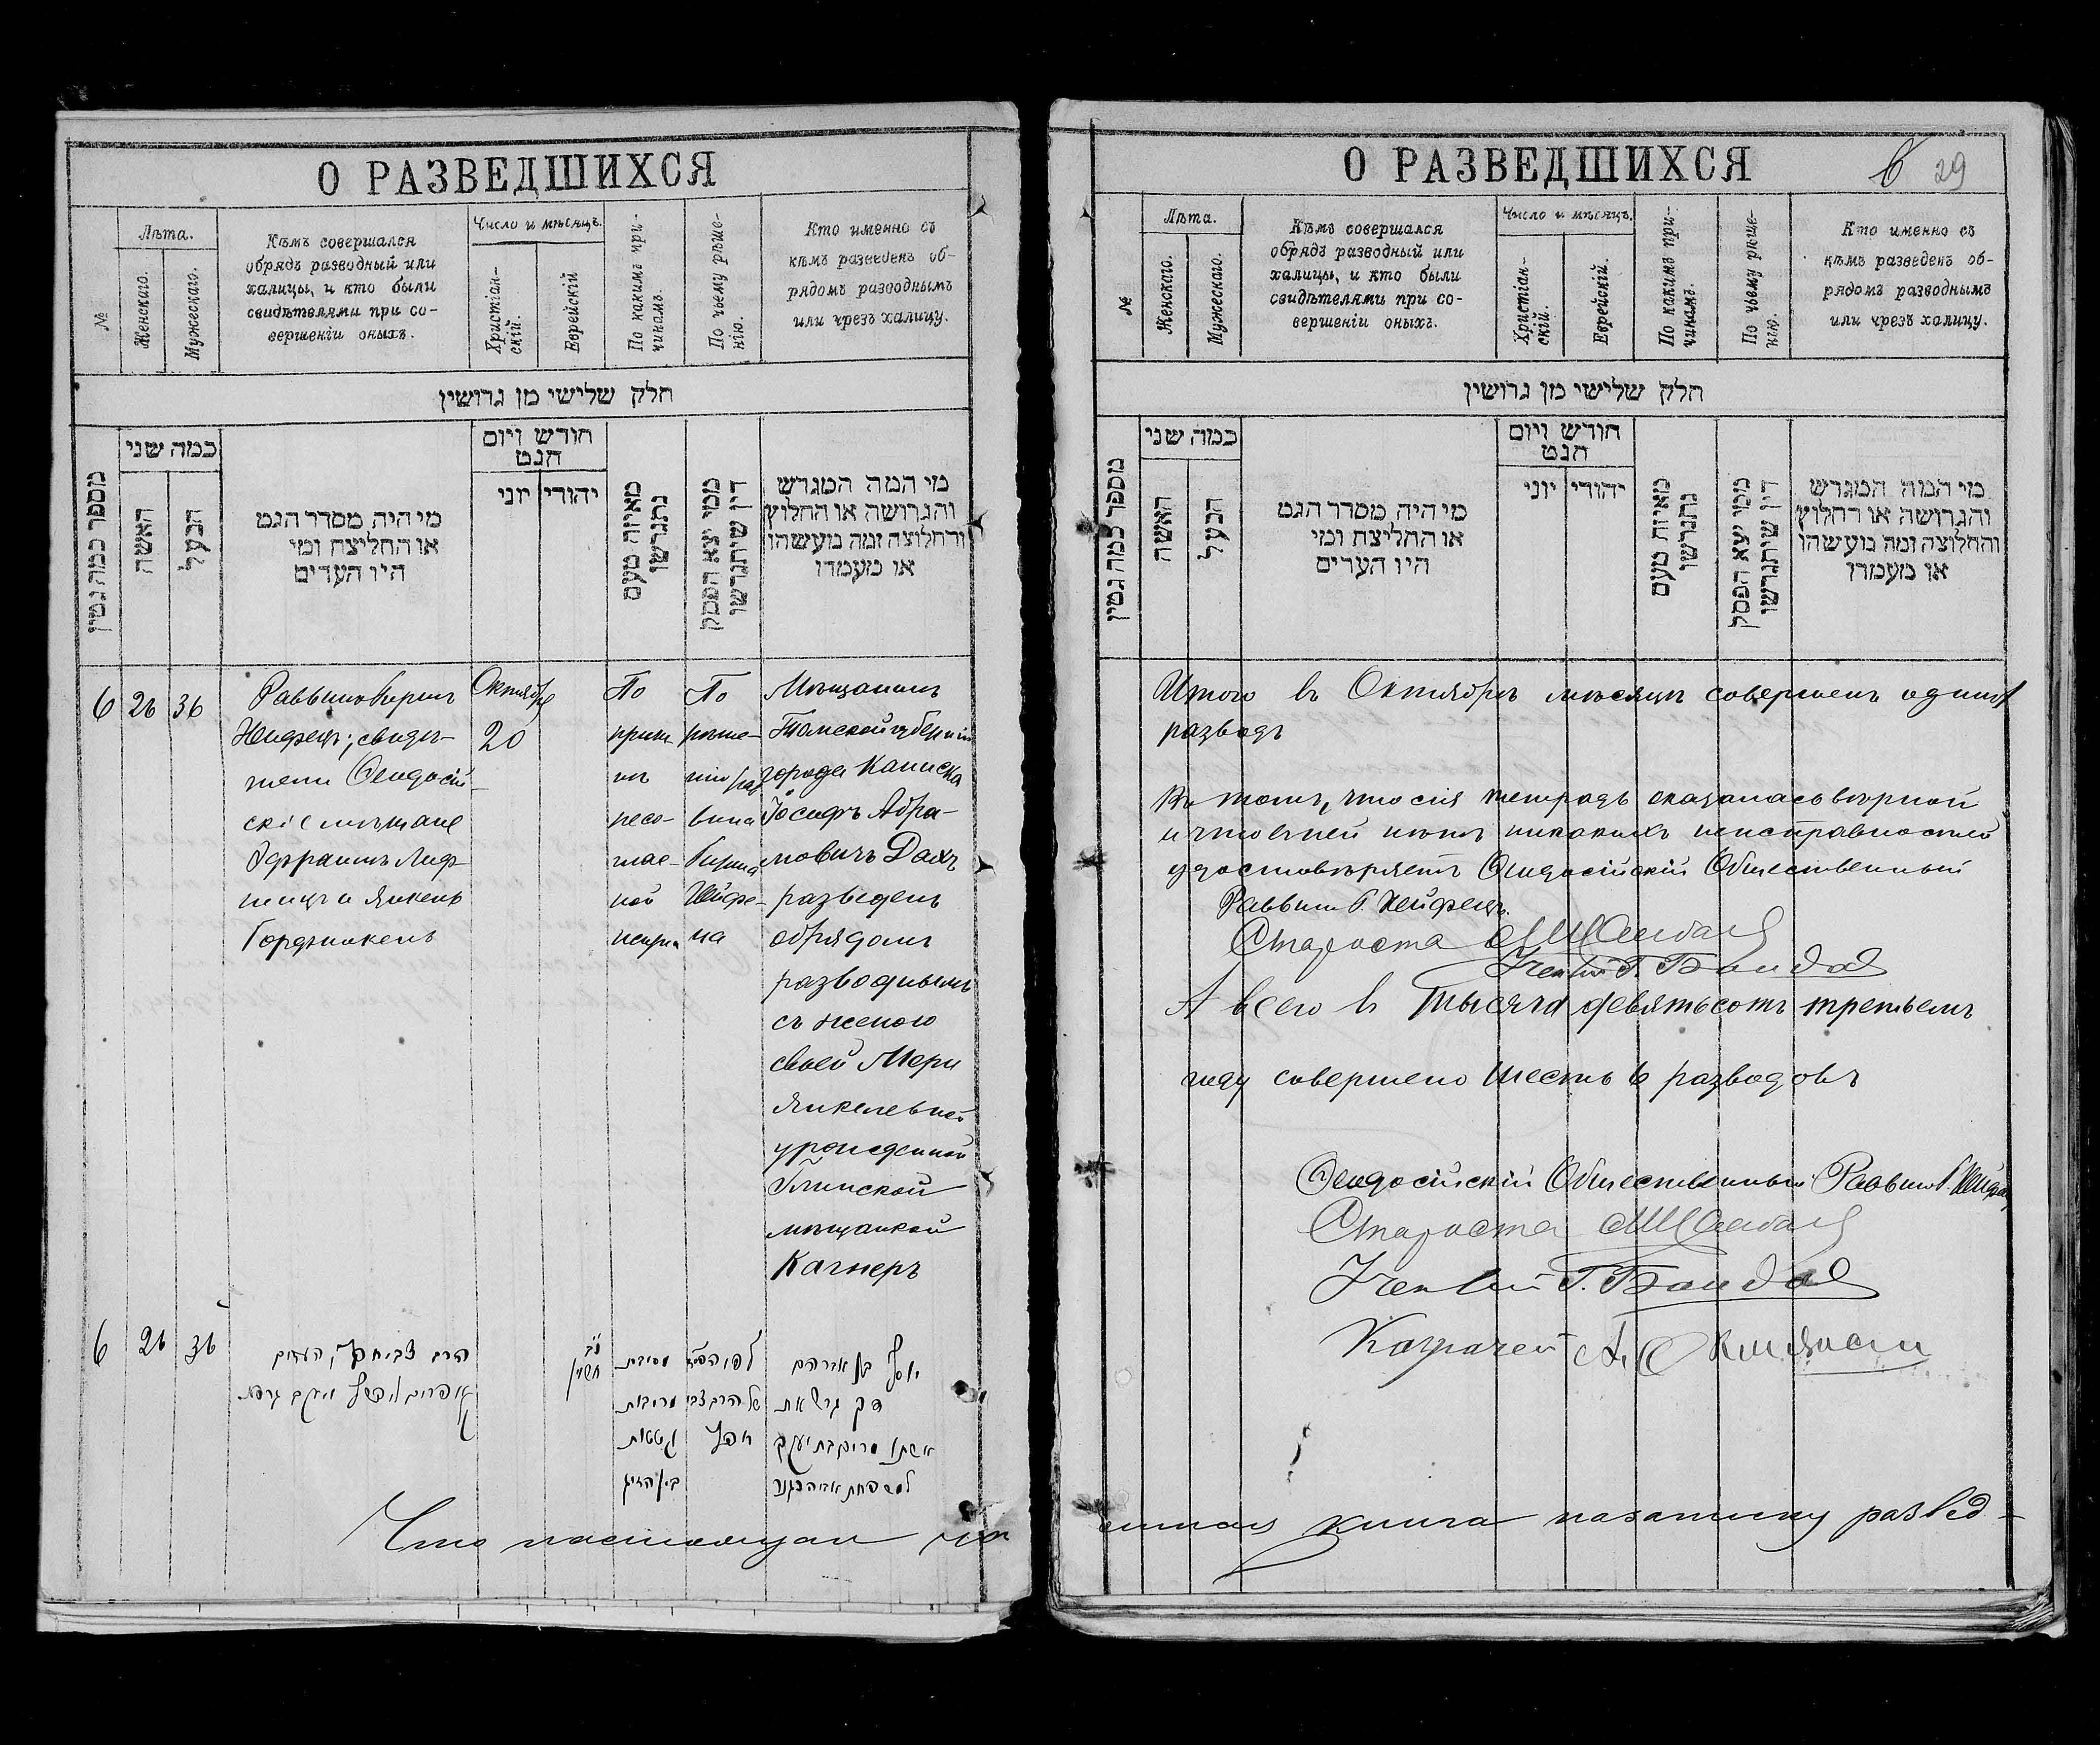 О РАЗВЕДШИХСЯ
№
Лѣта.
Женскаго.
Мужескаго.
Кѣмъ совершался
обрядъ разводный или
халицы, и кто были
свидѣтелями при со-
вершеніи оныхъ.
Число и мѣсяцъ.
Христіан-
скій.
Еврейскій
По какимъ при-
чинамъ.
По чьему рѣше-
нію.
Кто именно съ
кѣмъ разведенъ об-
рядомъ разводнымъ
или чрезъ халицу.
חלק שלישי מן גרושין
מספר כמה גטין
כמה שני
האשה
הבעל
מי היה מסדר הגט
או החליצה ומי
היו העדים
חודש ויום
הגט
יוני
יהודי
מאיזה טעם
נתגרשו
ממי יצא הפסק
דין שיתגרשו
מי המה המגרש
והגרושה או החלוץ
והחלוצה ומה מעשהו
או מעמדו
6 26 36
Раввиномъ
Хейфецъ; свидѣ-
тели Ѳеодосій-
скіе мѣщане
Эфраимъ Лиф-
шицъ и Янкель
Октября
20
По
причи-
нѣ
несо-
глас-
ной
жизни
По
рѣше-
нію рав-
вина
Хейфе-
ца
Мѣщанинъ
Томской губерніи
города Каинска
Іосифъ Абра-
мовичъ Дахъ
разведенъ
обрядомъ
разводнымъ
съ женою
своей Мери
Янкелевной
урожденной
мѣщанкой
Кагнеръ
6 26 36
יוסף בן אברהם
דק גרש את
אשתו מרים בת יעקב
Что настоящая
О РАЗВЕДШИХСЯ
6 29
№
Лѣта.
Женскаго.
Мужескаго.
Кѣмъ совершался
обрядъ разводный или
халицы, и кто были
свидѣтелями при со-
вершеніи оныхъ.
Число и мѣсяцъ.
Христіан-
скій.
Еврейскій.
По какимъ при-
чинамъ.
По чьему рѣше-
нію.
Кто именно съ
кѣмъ разведенъ об-
рядомъ разводнымъ
или чрезъ халицу.
חלק שלישי מן גרושין
מספר כמה גטין
כמה שני
האשה
הבעל
מי היה מסדר הגט
או החליצה ומי
היו העדים
חודש ויום
הגט
יוני
יהודי
מאיזה טעם
נתגרשו
ממי יצא הפסק
דין שיתגרשו
מי המה המגרש
והגרושה או החלוץ
והחלוצה ומה מעשהו
או מעמדו
Итого въ Октябрѣ мѣсяцѣ совершенъ одинъ 1
разводъ
Въ томъ, что сія тетрадь оказалась вѣрной
и что въ ней нѣтъ никакихъ неисправностей
удостовѣряетъ Ѳеодосійскій Общественный
Раввинъ Г. Хейфецъ.
Староста
А всего въ тысяча девятьсотъ третьемъ
году совершено шесть 6 разводовъ
Ѳеодосійскій Общественный Раввинъ Г. Хейфецъ
Староста
Казначей
книга на запись развед-